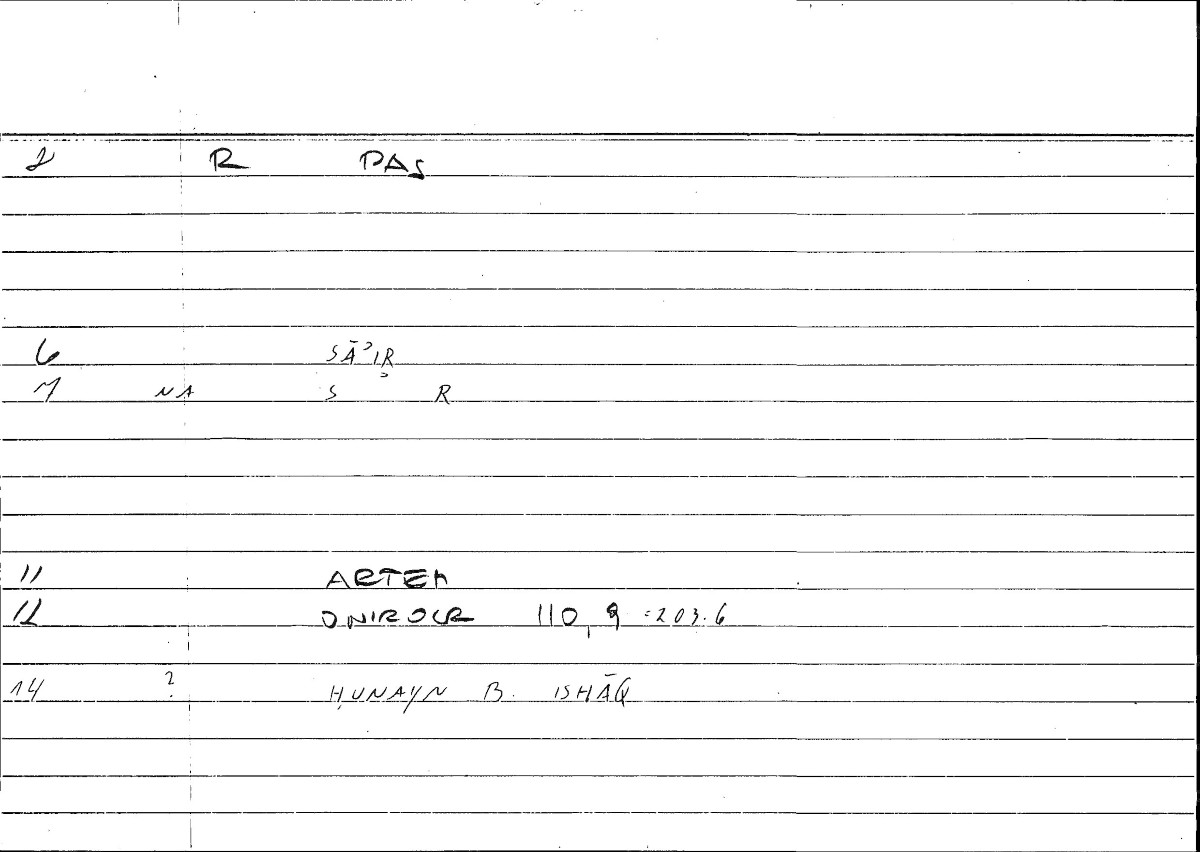 2 R PAS
6 SĀʾIR
7 NA S R
11 ARTEM
12 ONIROCR 110,9 =203.6
14 ? ḤUNAYN B. ISHĀQ